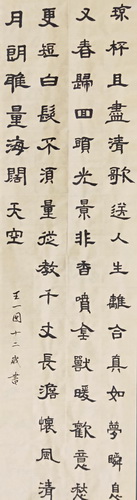 琼杯且盡清歌送人生離合真如夢瞬息
又春歸回頭光景非香噴金獸暖歡意愁
更短白髮不須量從教千丈長澹懷風清
月朗雅量海闊天空
王一 十二歲書